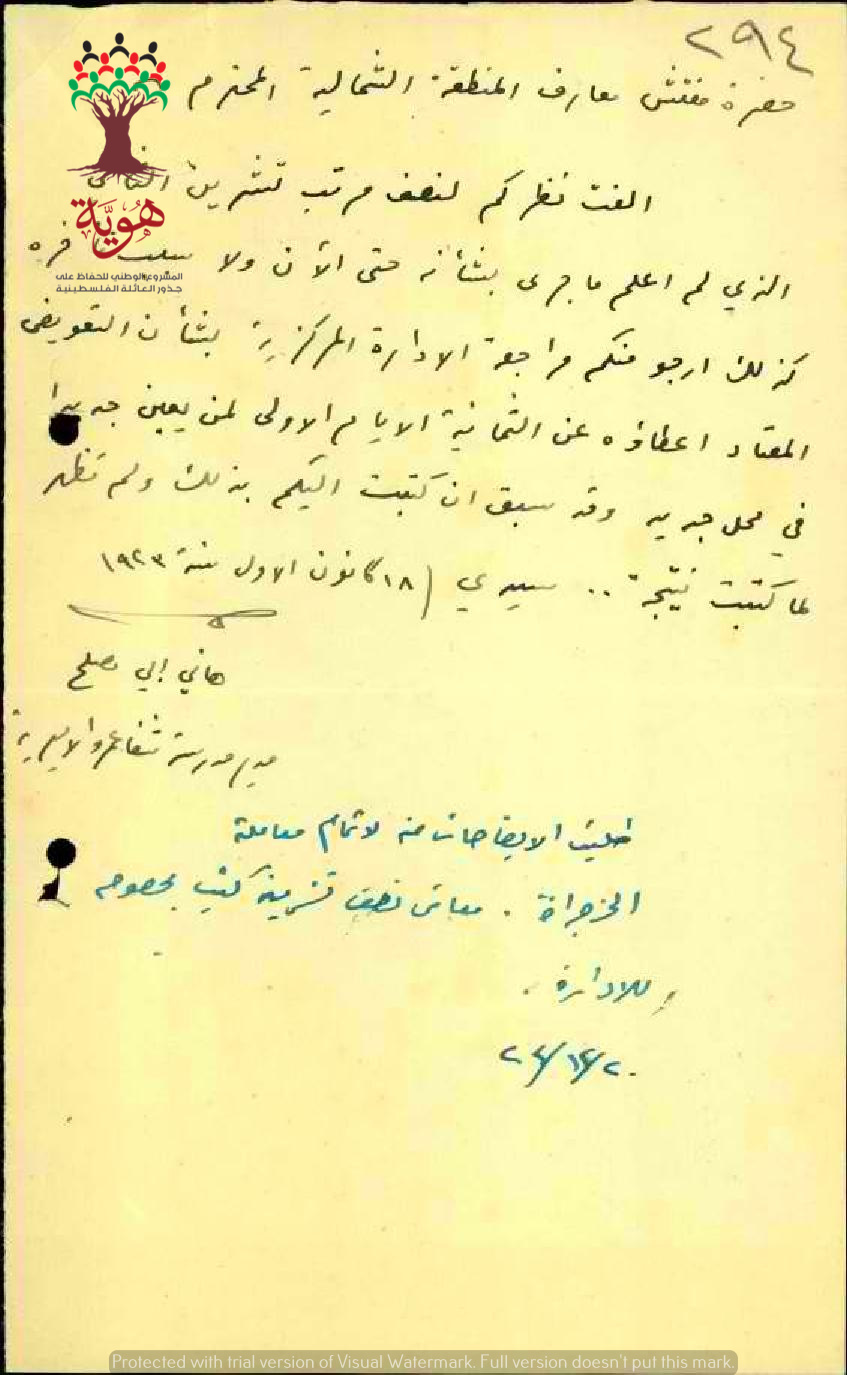 ٢٩٤
حضرة مفتش معارف المنطقة الشمالية المحترم
الفت نظركم لنصف مرتب تشرين الثاني
الذي لم اعلم ما جرى بشأنه حتى الآن ولا
كذلك ارجو منكم مراجعة الادارة المركزية بشأن التعويض
المعتاد اعطاؤه عن الثمانية الايام الاولى لمن يعين جديدا
في محل جديد وقد سبق ان كتبت اليكم بذلك ولم تظهر
لما كتبت نتيجة .. سيدي ١٨ كانون الاول سنة ١٩٢٣
هاني ابي مصلح
مدير مدرسة شفاعمرو الاميرية
طلبت الايضاحات منه لاتمام معاملة
. معاش نصف تشرين كتب بخصوصه
للادارة .
هوية
المشروع الوطني للحفاظ على
جذور العائلة الفلسطينية
Protected with trial version of Visual Watermark. Full version doesn't put this mark.